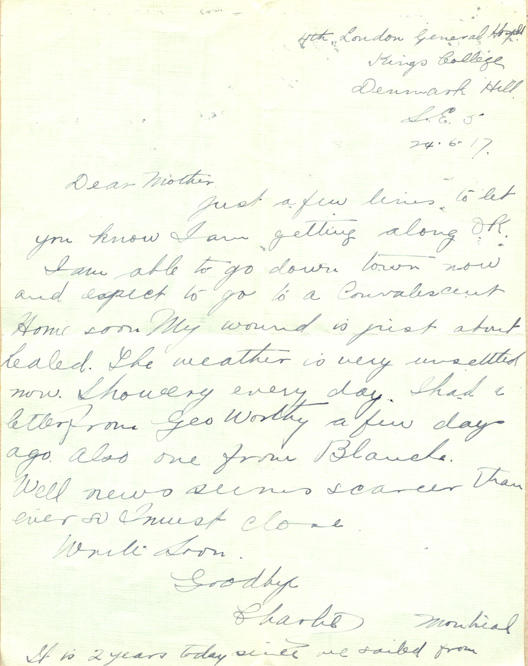 4th London General Hospt
Kings College
Denmark Hill
S.E. 5
24.6.17.
Dear Mother
Just a few lines to let
you know I am getting along OK.
I am able to go down town now
and expect to go to a Convalescent
Home soon My wound is just about
healed. The weather is very unsettled
now. Showery every day. I had a
letter from Geo Worthy a few days
ago. also one from Blanch.
Well news seems scarcer than
ever so I must close
Write Soon.
Goodbye
Charlie
Montreal
It is 2 years today since we sailed from